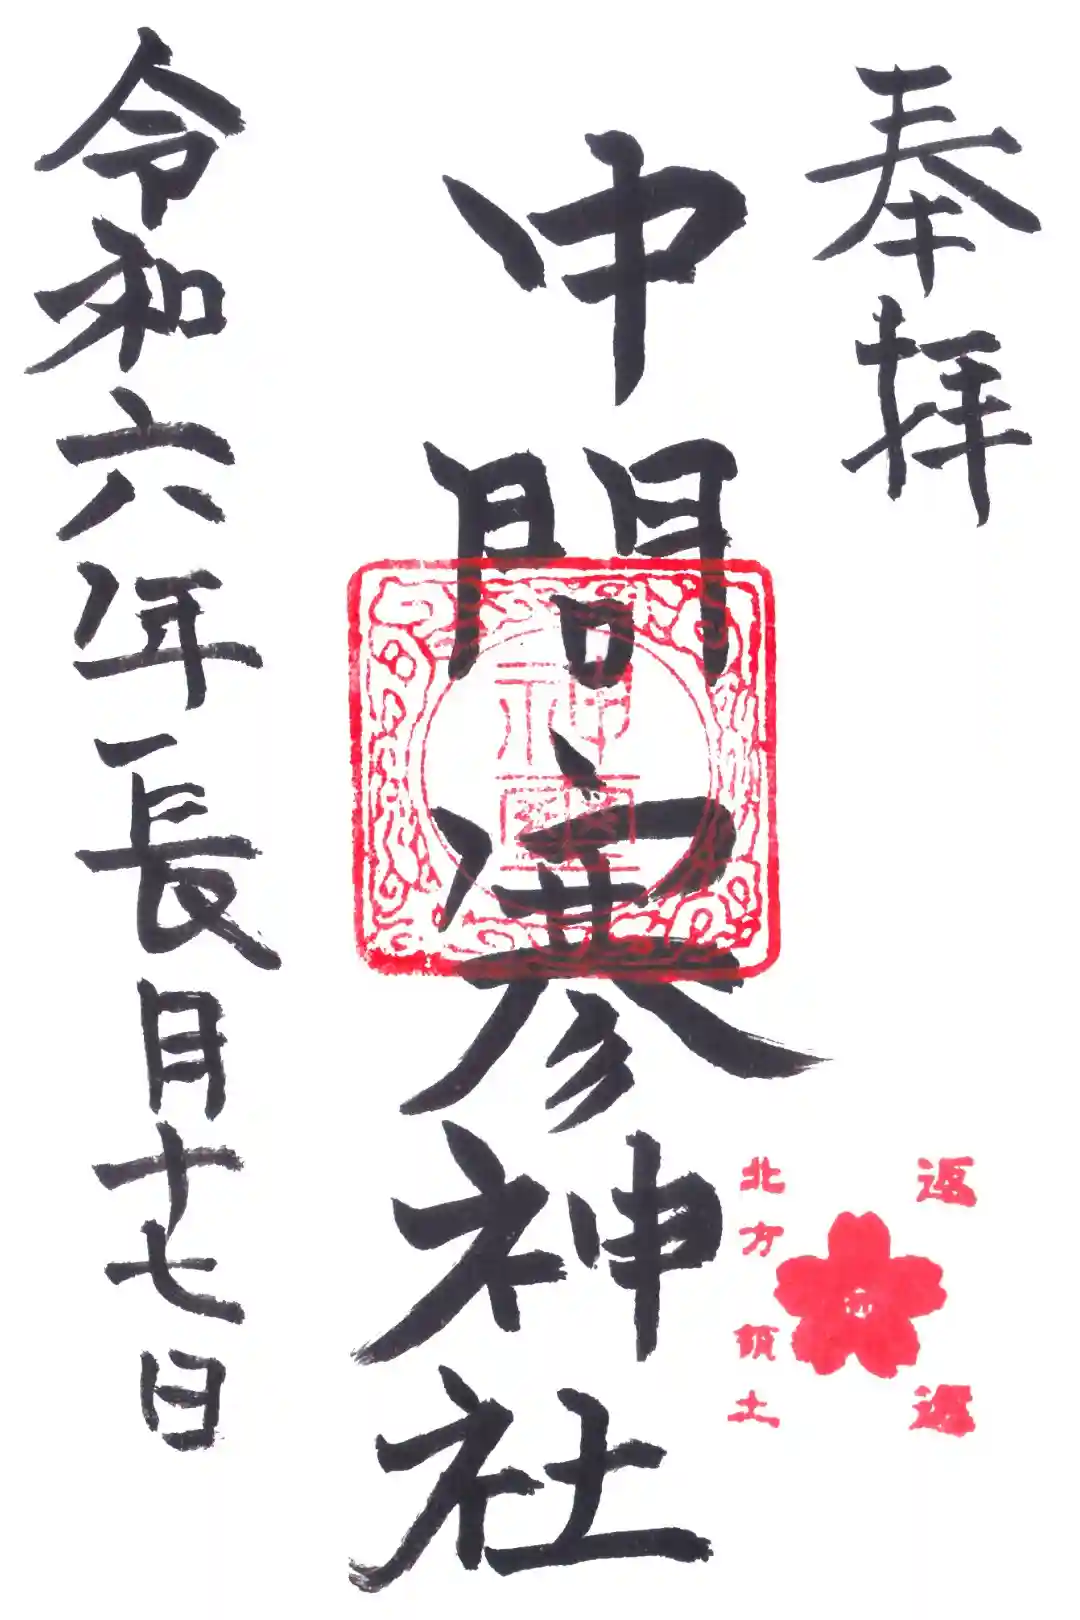 奉拝
中問寒神社
神璽
令和六年長月十七日
北方領土
返還